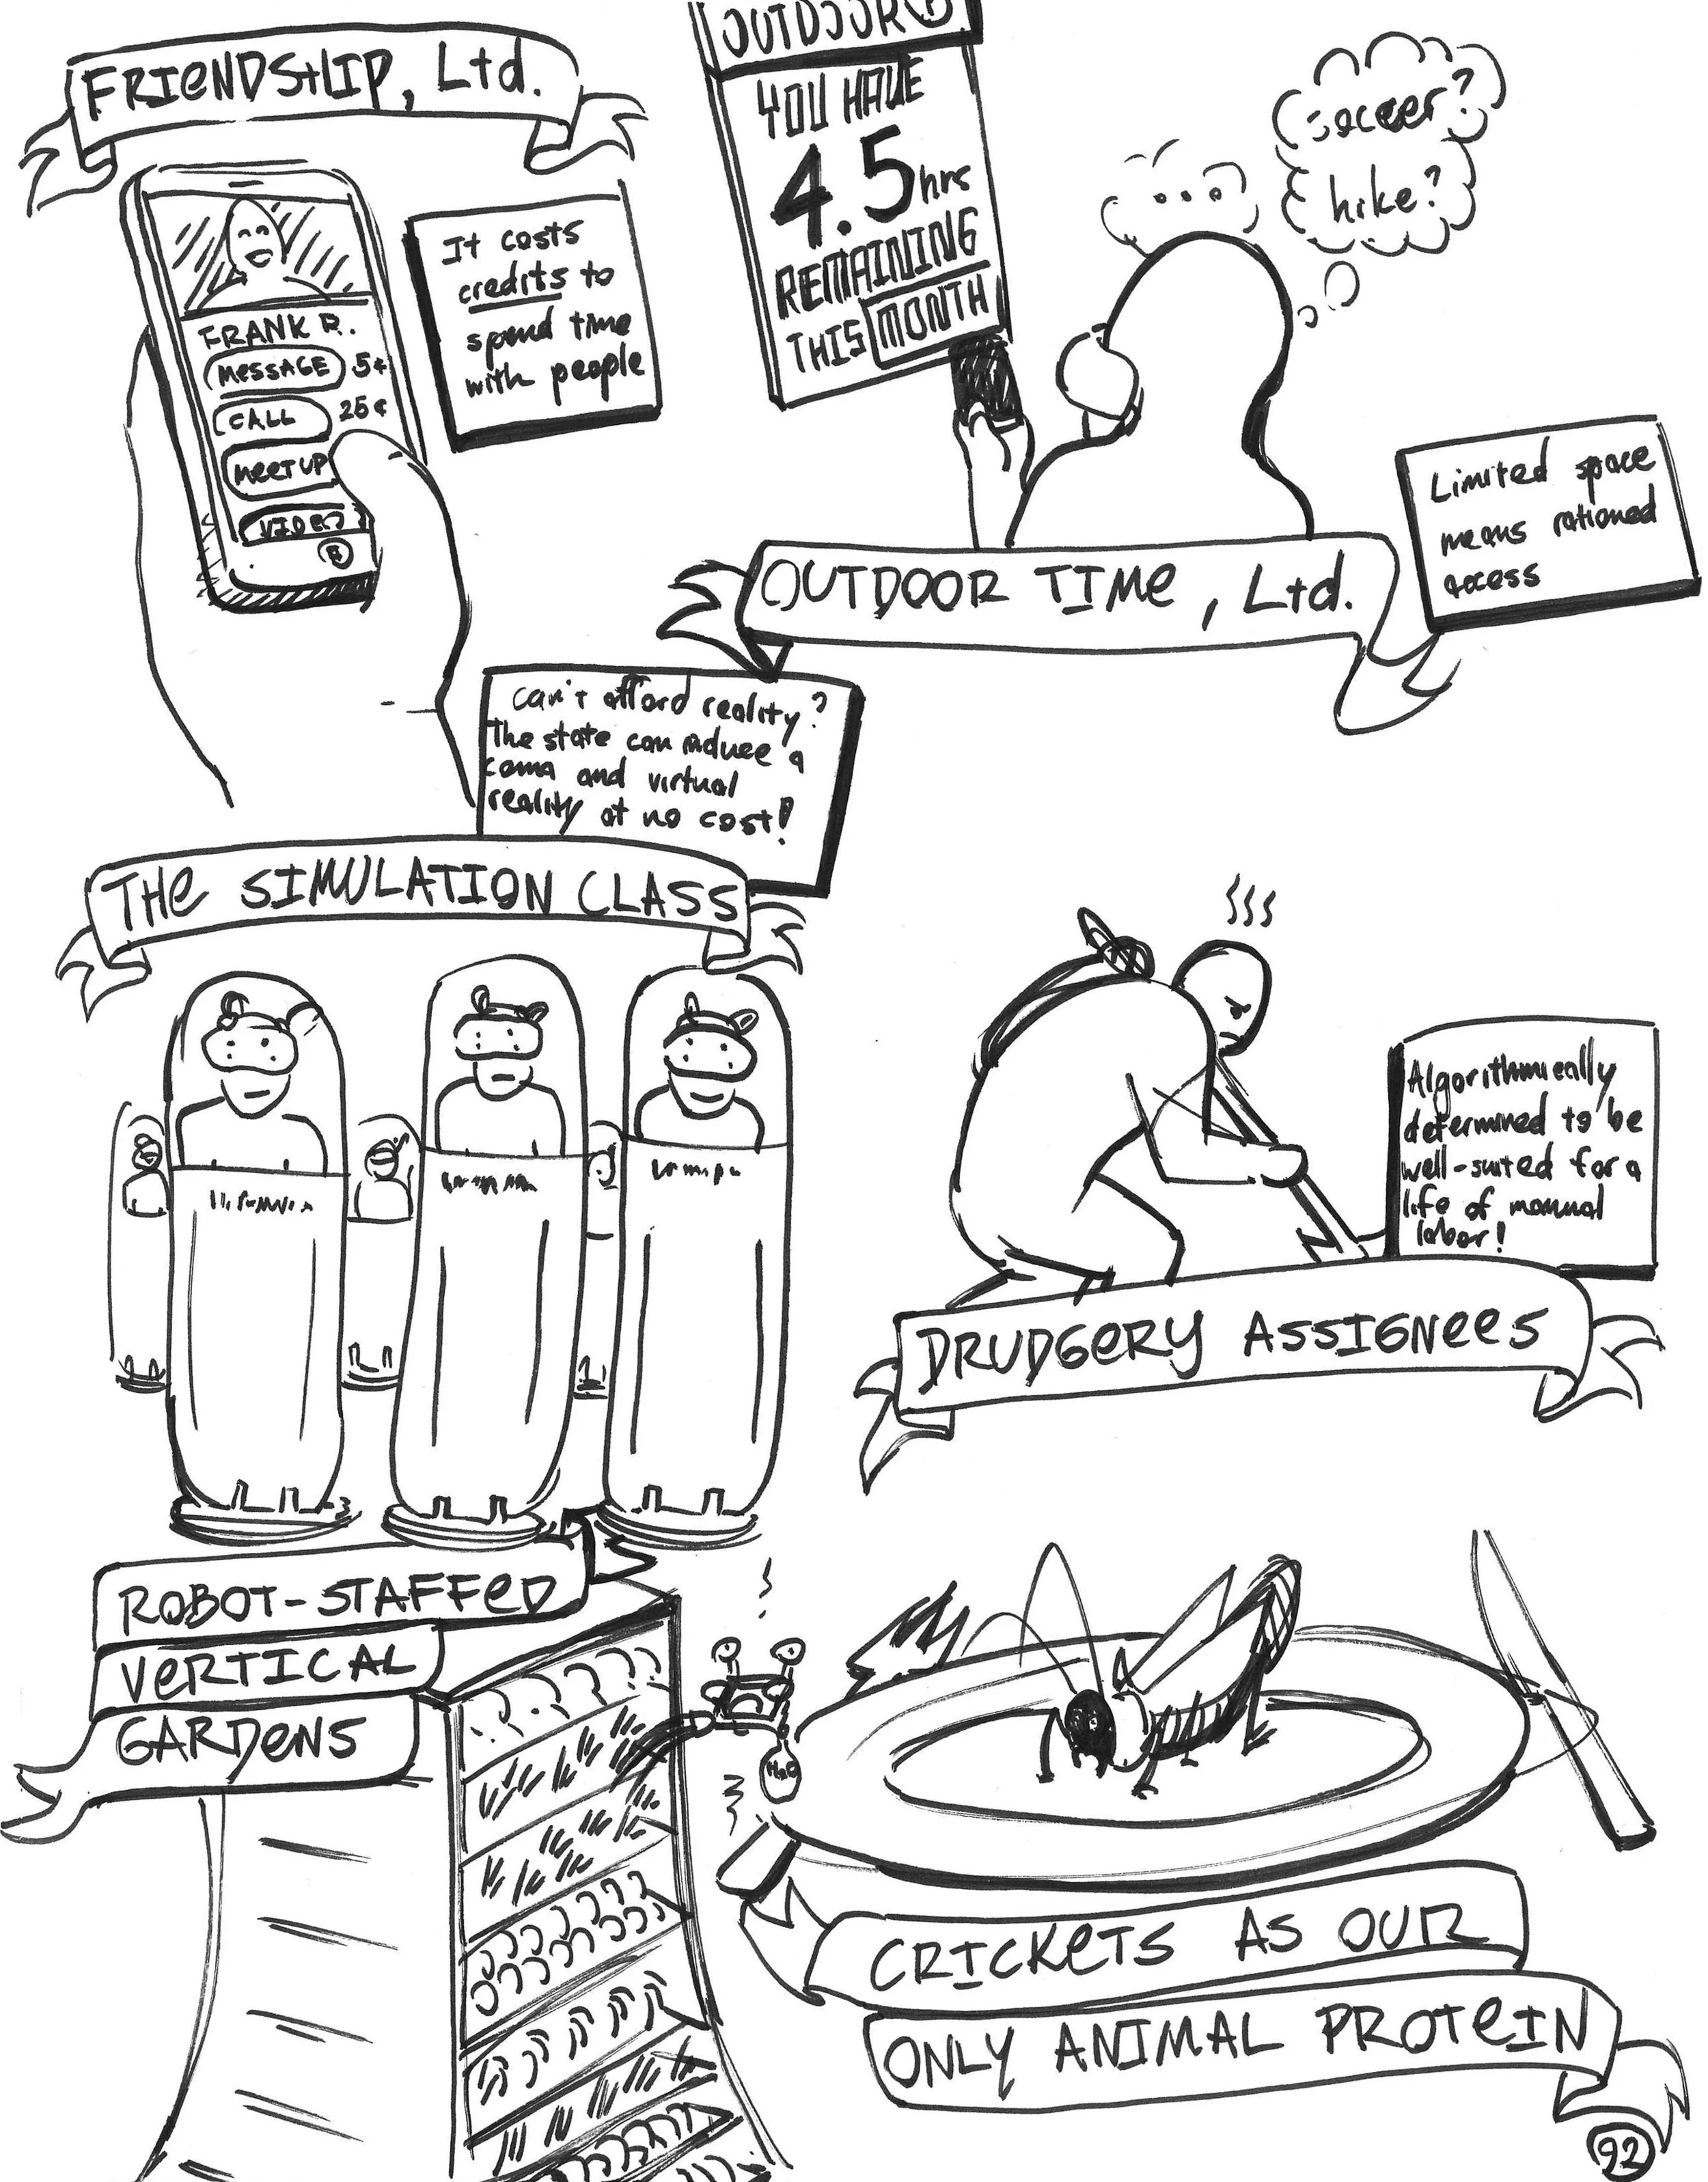 FRIENDSHIP, Ltd.
FRANK R.
MESSAGE 5¢
CALL 25¢
MEETUP
VIDEO
It costs
credits to
spend time
with people
OUTDOOR
YOU HAVE
4.5hrs
REMAINING
THIS MONTH
...
soccer?
hike?
OUTDOOR TIME, Ltd.
Limited space
means rationed
access
Can't afford reality?
The state can induce a
coma and virtual
reality at no cost!
THE SIMULATION CLASS
Algorithmically
determined to be
well-suited for a
life of manual
labor!
DRUDGERY ASSIGNEES
ROBOT-STAFFED
VERTICAL
GARDENS
H2O
CRICKETS AS OUR
ONLY ANIMAL PROTEIN
92